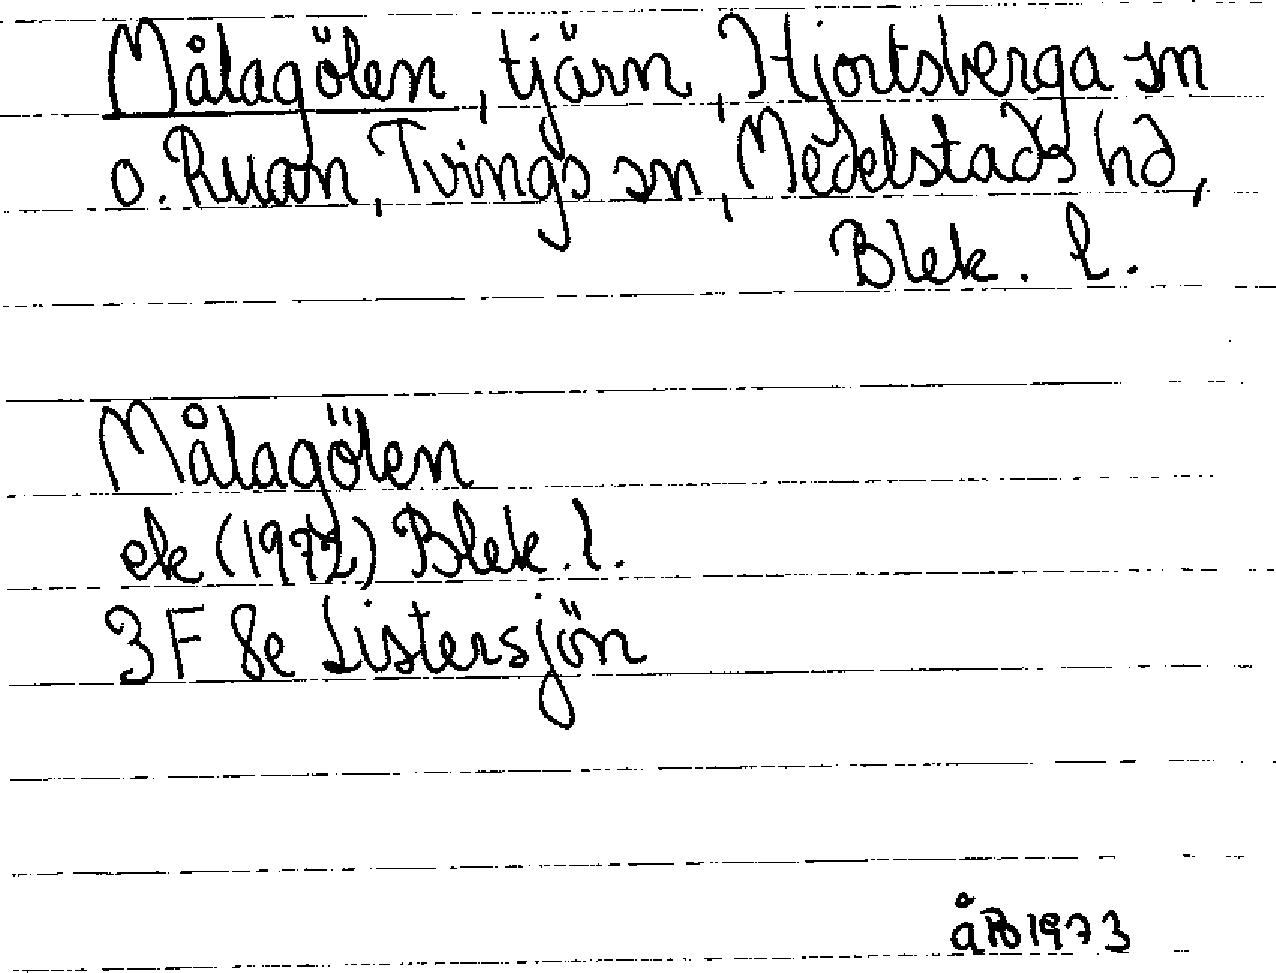 Målagölen, tjärn, Hjortsberga sn
o. Ruan, Tvings sn, Medelstads hd,
Blek. l.
Målagölen
ek (1972) Blek. l.
3F 8e Listersjön
1973